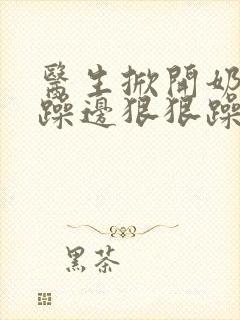 醫生掀開奶
躁邊狠狠躁
黑茶